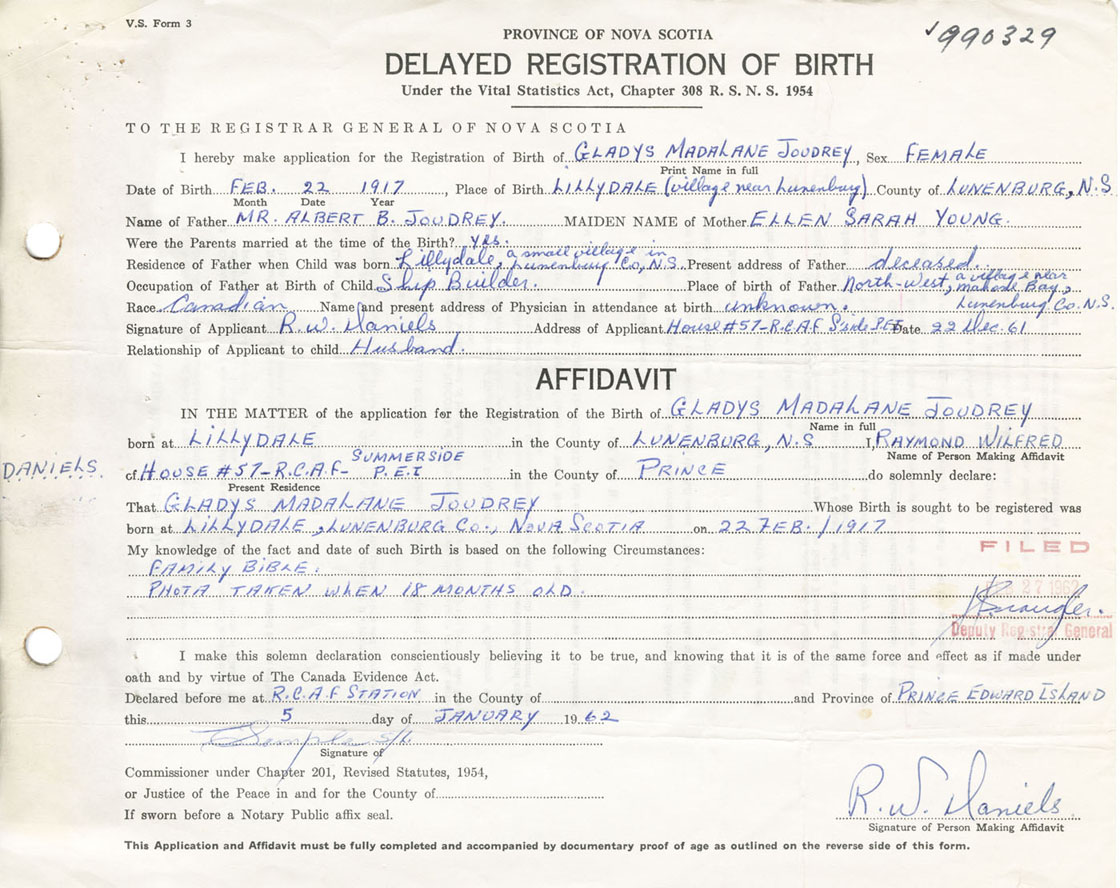 V.S. Form 3
990329
PROVINCE OF NOVA SCOTIA
DELAYED REGISTRATION OF BIRTH
Under the Vital Statistics Act, Chapter 308 R. S. N. S. 1954
TO THE REGISTRAR GENERAL OF NOVA SCOTIA
I hereby make application for the Registration of Birth of GLADYS MADALANE JOUDREY, Sex FEMALE
Print Name in full
Date of Birth FEB. 22 1917, Place of Birth LILLYDALE (village near Lunenburg) County of LUNENBURG, N.S.
Month Date Year
Name of Father MR. ALBERT B. JOUDREY. MAIDEN NAME of Mother ELLEN SARAH YOUNG.
Were the Parents married at the time of the Birth? yes.
Residence of Father when Child was born Lillydale, a small village in Lunenburg Co, N.S. Present address of Father deceased.
Occupation of Father at Birth of Child Ship Builder. Place of birth of Father North-West, a village near Mahone Bay, Lunenburg Co. N.S.
Race Canadian Name and present address of Physician in attendance at birth unknown.
Signature of Applicant R. W. Daniels Address of Applicant House #57-R.C.A.F S'side PEI Date 22 Dec. 61
Relationship of Applicant to child Husband.
AFFIDAVIT
IN THE MATTER of the application for the Registration of the Birth of GLADYS MADALANE JOUDREY
Name in full
born at LILLYDALE in the County of LUNENBURG, N.S I, RAYMOND WILFRED
Name of Person Making Affidavit
DANIELS. of HOUSE #57-R.C.A.F- SUMMERSIDE P.E.I in the County of PRINCE do solemnly declare:
Present Residence
That GLADYS MADALANE JOUDREY Whose Birth is sought to be registered was
born at LILLYDALE, LUNENBURG CO., NOVA SCOTIA on 22 FEB./1917
My knowledge of the fact and date of such Birth is based on the following Circumstances:
FILED
FAMILY BIBLE.
PHOTA TAKEN WHEN 18 MONTHS OLD.
27 1962
Deputy Registrar General
I make this solemn declaration conscientiously believing it to be true, and knowing that it is of the same force and effect as if made under
oath and by virtue of The Canada Evidence Act.
Declared before me at R.C.A.F STATION in the County of and Province of PRINCE EDWARD ISLAND
this 5 day of JANUARY 1962
Signature of
Commissioner under Chapter 201, Revised Statutes, 1954,
or Justice of the Peace in and for the County of
If sworn before a Notary Public affix seal.
R. W. Daniels
Signature of Person Making Affidavit
This Application and Affidavit must be fully completed and accompanied by documentary proof of age as outlined on the reverse side of this form.